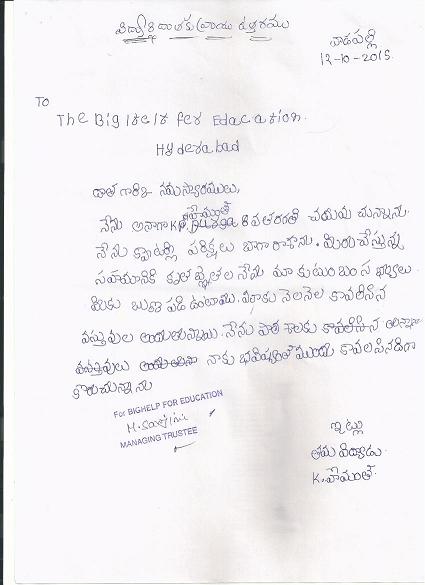 విద్యార్థి దాతకు వ్రాయు ఉత్తరము
వాడపల్లి
12-10-2015.
TO
The Big Help for Education.
Hyderabad
దాత గారికి నమస్కారములు,
హేమంత్
నేను అనగా K. 8వ తరగతి చదువు చున్నాను.
నేను క్వాటర్లి పరిక్షలు బాగా రాసాను. మీరు చేస్తున్న
సహాయానికి నేను మా కుటుంబం సభ్యులు
మీకు రుణ పడి ఉంటాము. నెలనెల కావలసిన
వస్తువుల అందుతున్నాయి. నేను పాఠ శాలకు కావలసిన అన్ని
వస్తువులు నాకు భవిష్యత్
కోరుచున్నాను
For BIGHELP FOR EDUCATION
MANAGING TRUSTEE
ఇట్లు
తమ విద్యార్థి
K. హేమంత్.